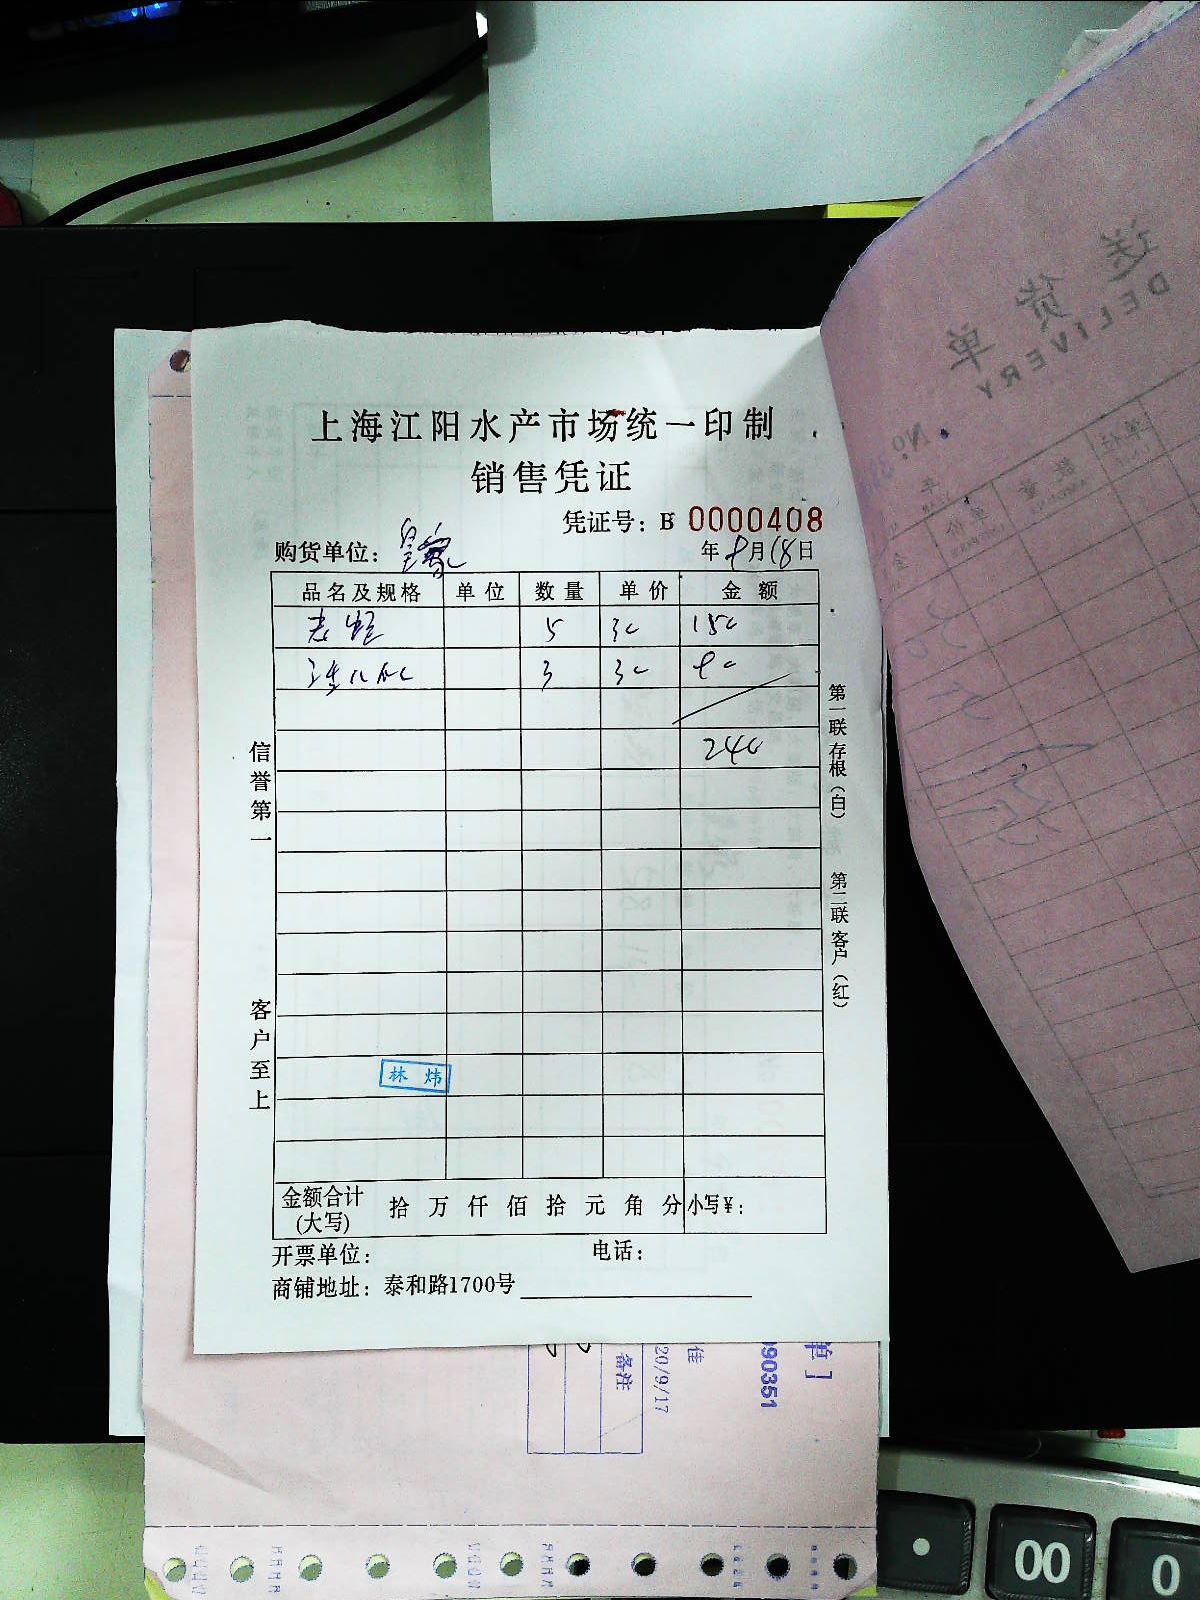 上海江阳水产市场统一印制
销售凭证
凭证号：B 0000408
购货单位：皇家
年9月18日
品名及规格 单位 数量 单价 金额
5 30 150
3 30 90
240
信誉第一
客户至上
第一联存根（白）
第二联客户（红）
林炜
金额合计(大写) 拾万仟佰拾元角分 小写¥：
开票单位： 电话：
商铺地址：泰和路1700号
送货单
DELIVERY
No.
数量
单价
备注
20/9/17
佳
090351
单]
.
00
0